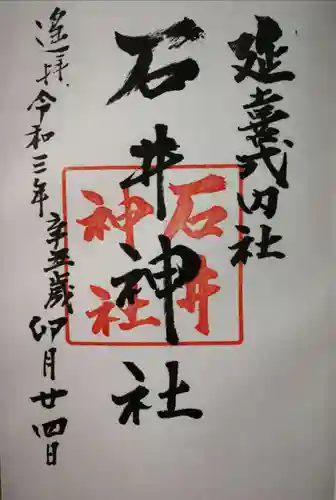 延喜式内社
石井神社
石井
神社
遙拝 令和三年 辛丑歳 卯月廿四日